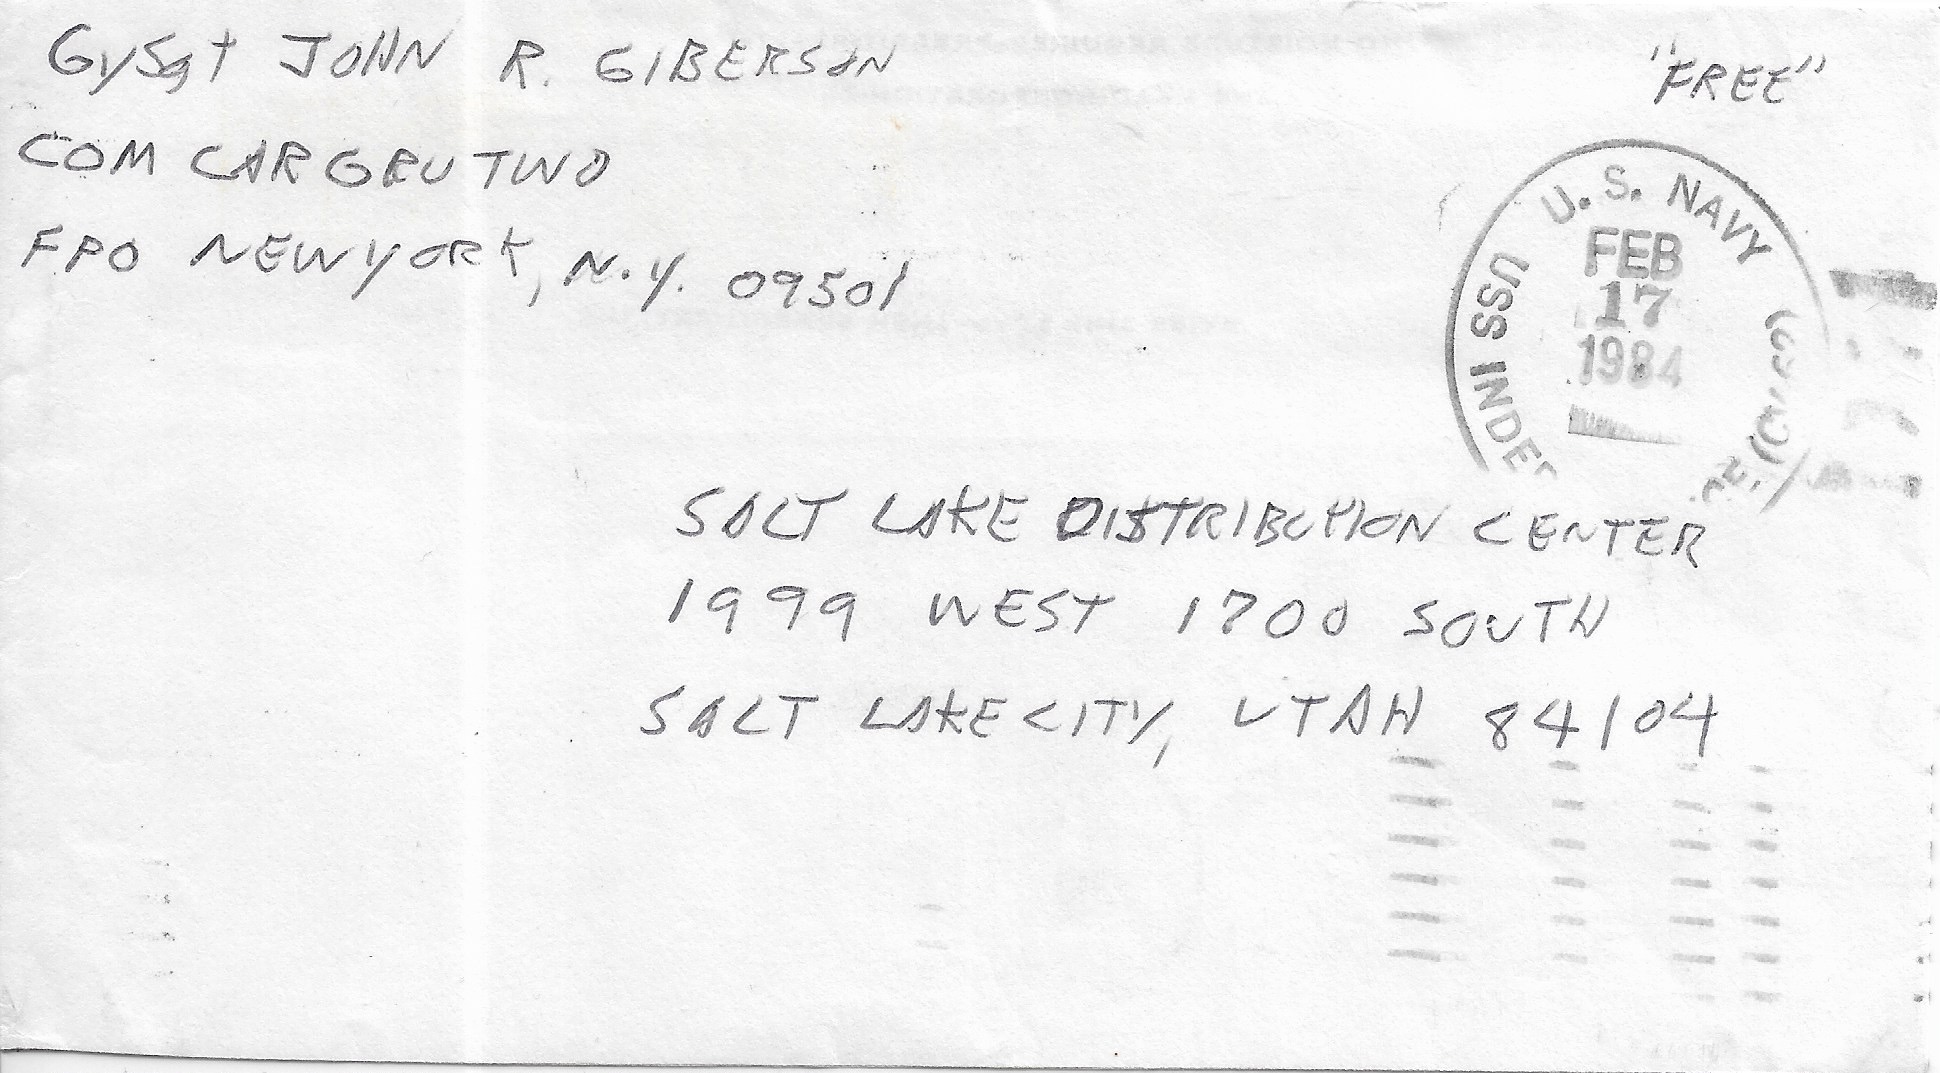 GySgt JOHN R. GIBERSON
COM CAR GRU TWO
FPO NEW YORK, N.Y. 09501
"FREE"
U.S. NAVY
USS INDE
FEB
17
1984
SALT LAKE DISTRIBUTION CENTER
1999 WEST 1700 SOUTH
SALT LAKE CITY, UTAH 84104